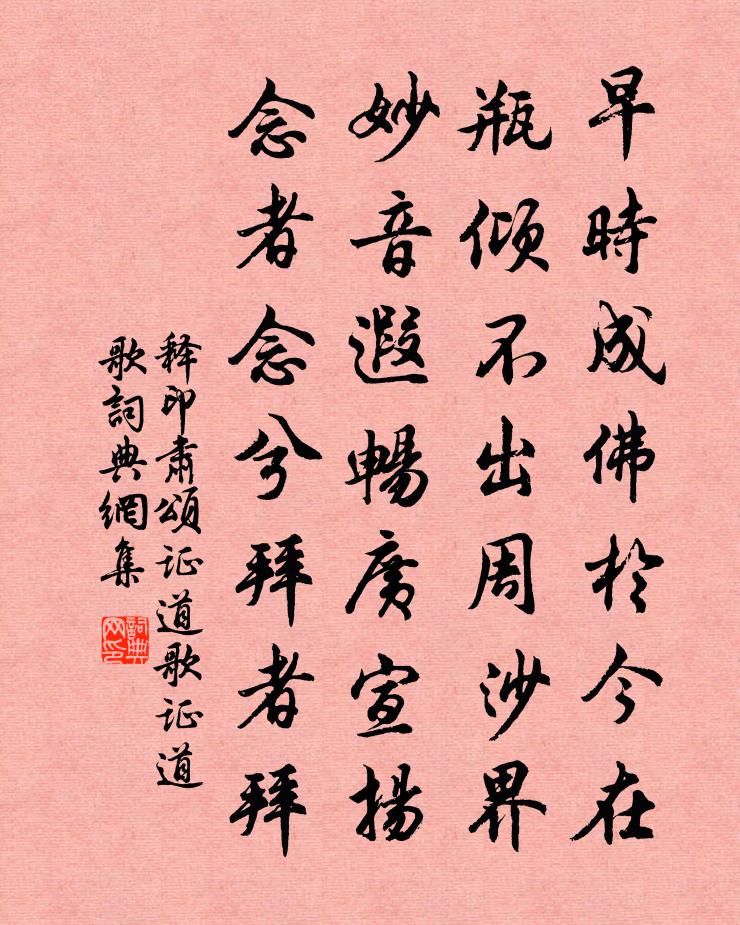 早時成佛於今在
瓶傾不出周沙界
妙音遐暢廣宣揚
念者念兮拜者拜
释印肅頌证道歌证道
歌詞典網集
詞典网印